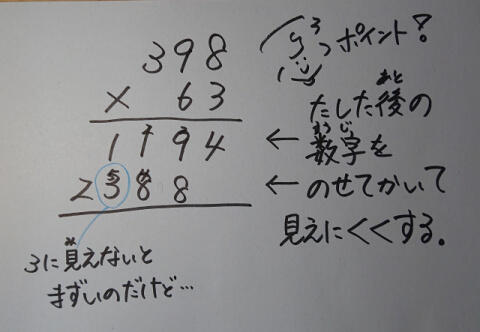 398
ポイント!
× 63
たした後の
あと
1194
← 数字を
すうじ
2388
← のせてかいて
見えにくくする。
3に見えないと
み
まずいのだけど…